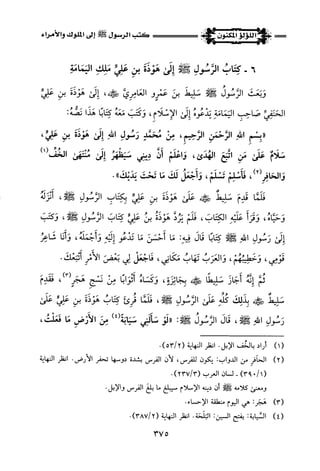 اللؤلؤ المكنون
كتب الرسول ﷺ إلى الملوك والأمراء
٦ - كِتَابُ الرَّسُولِ ﷺ إِلَى هَوْذَةَ بنِ عَلِيٍّ مَلِكِ اليَمَامَةِ
وَبَعَثَ الرَّسُولُ ﷺ سَلِيطَ بنَ عَمْرٍو العَامِرِيَّ ﷺ، إِلَى هَوْذَةَ بنِ عَلِيٍّ
الحَنَفِيِّ صَاحِبِ اليَمَامَةِ يَدْعُوهُ إِلَى الإِسْلَامِ، وَكَتَبَ مَعَهُ كِتَابًا هَذَا نَصُّهُ:
«بِسْمِ اللهِ الرَّحْمَنِ الرَّحِيمِ، مِنْ مُحَمَّدٍ رَسُولِ اللهِ إِلَى هَوْذَةَ بنِ عَلِيٍّ،
سَلَامٌ عَلَى مَنِ اتَّبَعَ الهُدَى، وَاعْلَمْ أَنَّ دِينِي سَيَظْهَرُ إِلَى مُنْتَهَى الخُفِّ(١)
وَالحَافِرِ(٢)، فَأَسْلِمْ تَسْلَمْ، وَأَجْعَلُ لَكَ مَا تَحْتَ يَدَيْكَ».
فَلَمَّا قَدِمَ سَلِيطٌ عَلَى هَوْذَةَ بنِ عَلِيٍّ بِكِتَابِ الرَّسُولِ ﷺ، أَنْزَلَهُ
وَحَيَّاهُ، وَقَرَأَ عَلَيْهِ الكِتَابَ، فَلَمْ يَرُدَّ هَوْذَةُ بنُ عَلِيٍّ كِتَابَ الرَّسُولِ ﷺ، وَكَتَبَ
إِلَى رَسُولِ اللهِ ﷺ كِتَابًا قَالَ فِيهِ: مَا أَحْسَنَ مَا تَدْعُو إِلَيْهِ وَأَجْمَلَهُ، وَأَنَا شَاعِرُ
قَوْمِي، وَخَطِيبُهُمْ، وَالعَرَبُ تَهَابُ مَكَانِي، فَاجْعَلْ لِي بَعْضَ الأَمْرِ أَتَّبِعْكَ.
ثُمَّ إِنَّهُ أَجَازَ سَلِيطًا بِجَائِزَةٍ، وَكَسَاهُ أَثْوَابًا مِنْ نَسْجِ هَجَرَ(٣)، فَقَدِمَ
سَلِيطٌ بِذَلِكَ كُلِّهِ عَلَى الرَّسُولِ ﷺ، فَلَمَّا قُرِئَ كِتَابُ هَوْذَةَ بنِ عَلِيٍّ عَلَى
رَسُولِ اللهِ ﷺ، قَالَ الرَّسُولُ ﷺ: «لَوْ سَأَلَنِي سَيَابَةً(٤) مِنَ الأَرْضِ مَا فَعَلْتُ،
(١) أراد بالخُف الإبل. انظر النهاية (٥٣/٢).
(٢) الحافر من الدواب: يكون للفرس، لأن الفرس بشدة دوسها تحفر الأرض. انظر النهاية
(٣٩٠/١) - لسان العرب (٢٣٧/٣).
ومعنى كلامه ﷺ أن دينه الإسلام سيبلغ ما بلغ الفرس والإبل.
(٣) هَجَر: هي اليوم منطقة الإحساء.
(٤) السَّيابة: بفتح السين: البَلَحَة. انظر النهاية (٣٨٧/٢).
٣٧٥